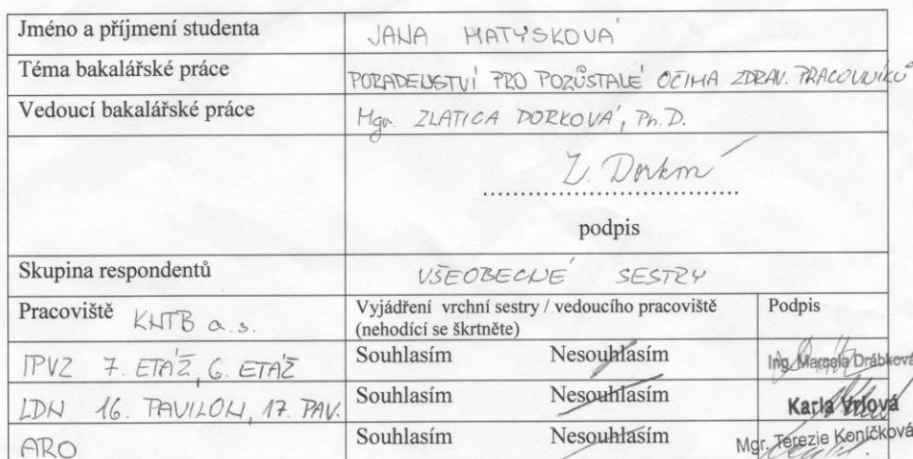 Jméno a příjmení studenta JANA MATYSKOVÁ
Téma bakalářské práce PORADENSTVÍ PRO POZŮSTALÉ OČIMA ZDRAV. PRACOVNÍKŮ
Vedoucí bakalářské práce Mgr. ZLATICA DORKOVÁ, Ph.D.
Z. Dorková
podpis
Skupina respondentů VŠEOBECNÉ SESTRY
Pracoviště KNTB a.s. Vyjádření vrchní sestry / vedoucího pracoviště Podpis
(nehodící se škrtněte)
IPVZ 7. ETÁŽ, 6. ETÁŽ Souhlasím Nesouhlasím Ing. Marcela Drábková
LDN 16. PAVILON, 17. PAV. Souhlasím Nesouhlasím Karla Vrlová
ARO Souhlasím Nesouhlasím Mgr. Terezie Koníčková